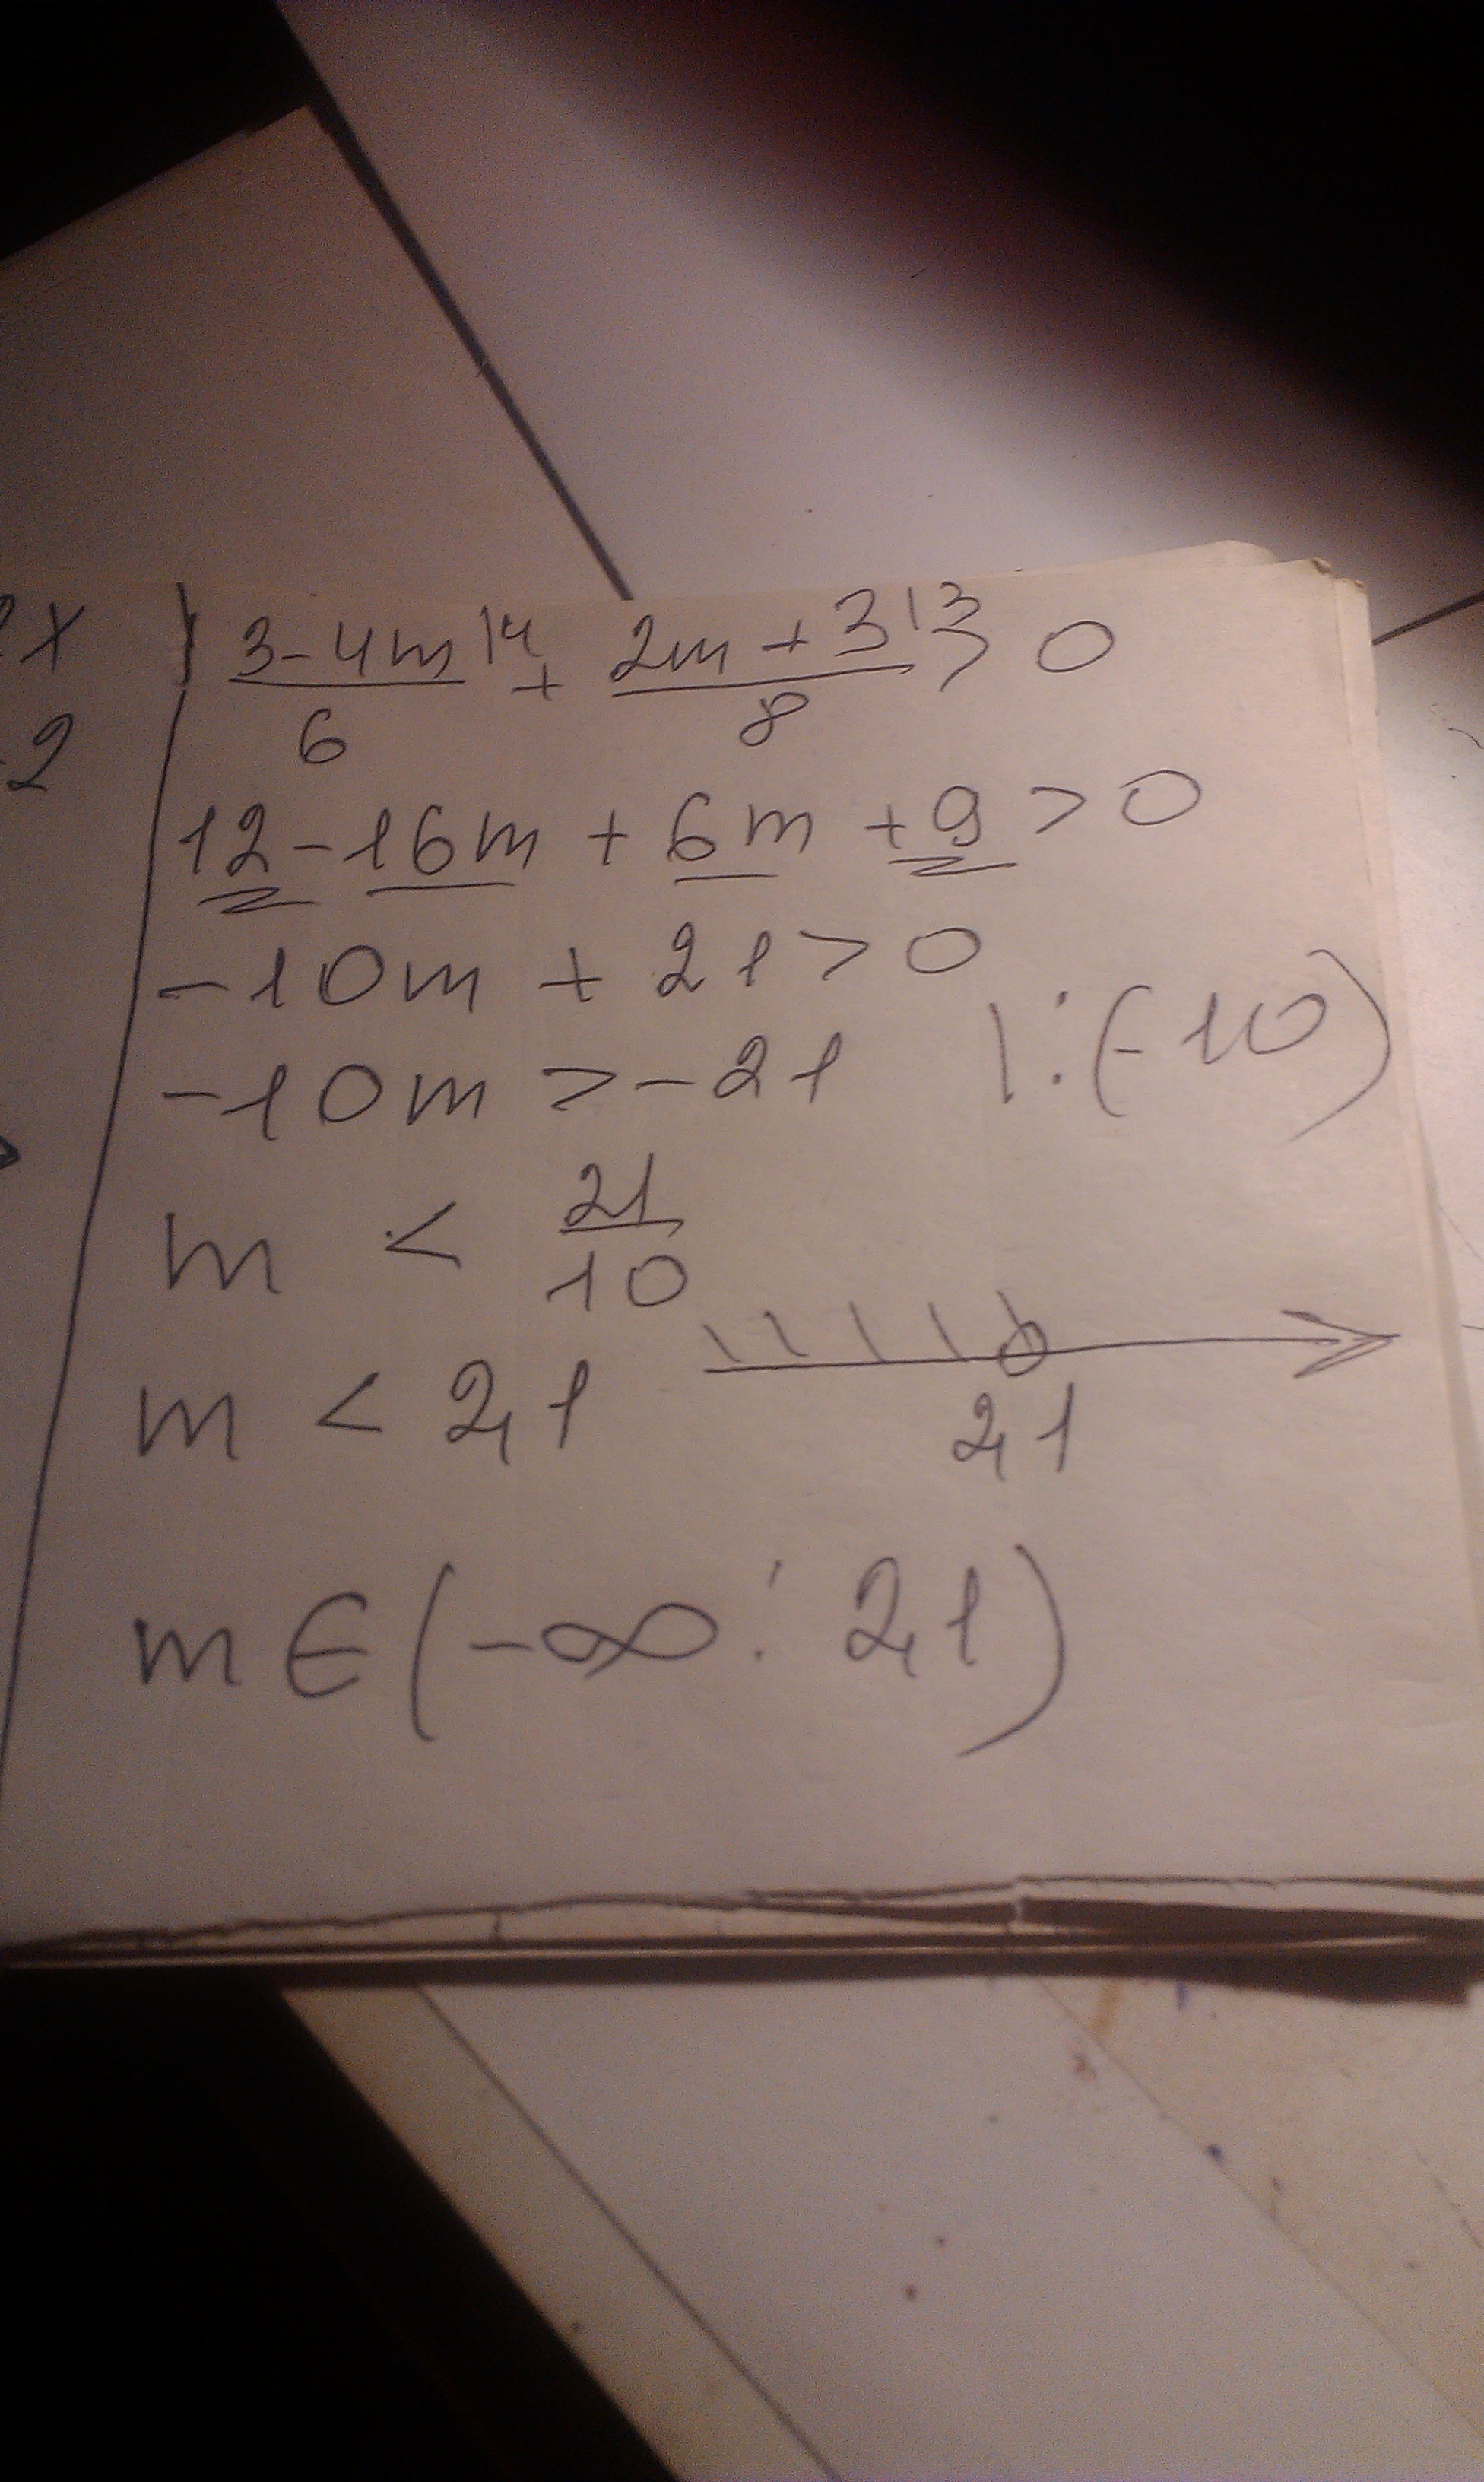 3-4m|4 + 2m+3|3 > 0
6 8
12-16m+6m+9>0
-10m+21>0
-10m>-21 |:(-10)
m < 21
10
m < 2,1
2,1
m∈(-∞; 2,1)
x
2